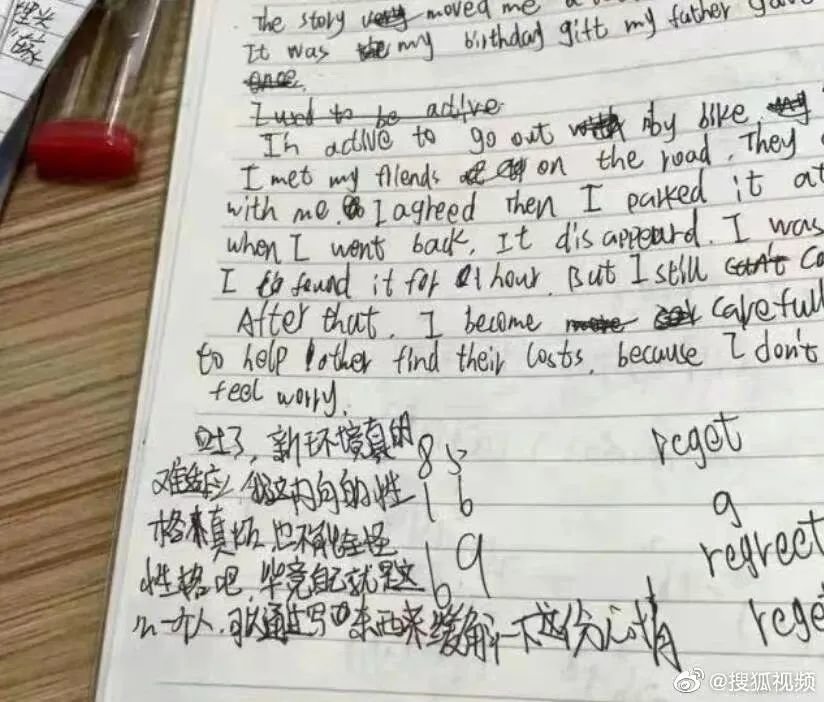 The story moved me a
It was my birthday gift my father gave
once.
I used to be active
I'm active to go out by bike.
I met my friends on the road. They
with me. I agreed then I parked it at
when I went back, It disappeard. I was
I found it for 1 hour. But I still can't co
After that, I become more carefull
to help other find their losts, because I don't
feel worry.
新环境真的 85
难适应 我这内向的性 16
格真 也不能全怪 69
性格吧,毕竟自己就是这
么一个人,可以通过写 东西来缓解一下这份心情
reget
g
regrect
rege
@搜狐视频